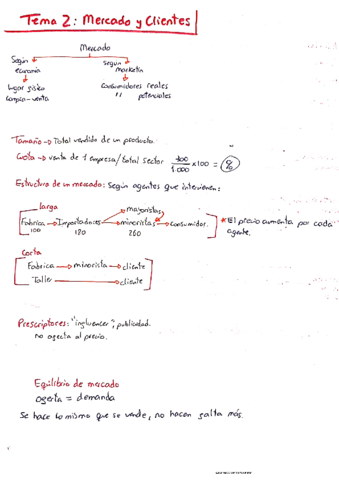 Tema 2: Mercado y Clientes
Mercado
Según economía
lugar físico
compra - venta
según marketin
consumidores reales
" potenciales
Tamaño → Total vendido de un producto.
Cuota → venta de 1 empresa/total sector 400/1.000 x100 = %
Estructura de un mercado: según agentes que intervienen:
Larga
mayoristas
Fabrica → Importadores → minoristas → consumidor.
100 180 260
* El precio aumenta por cada agente.
Corta
Fabrica → minorista → cliente
Taller → cliente
Prescriptores: "influencer", publicidad.
no afecta al precio.
Equilibrio de mercado
oferta = demanda
Se hace lo mismo que se vende, no hacen falta más.